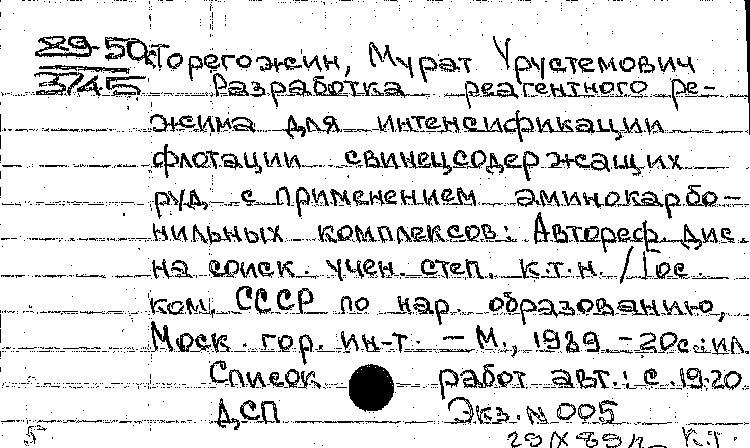 89-50к Торегожин, Мурат Урустемович
3745 Разработка реагентного ре-
жима для интенсификации
флотации свинецсодержащих
руд, с применением аминокарбо-
нильных комплексов: Автореф. дис.
на соиск. учен. степ. к.т.н. / Гос.
ком. СССР по нар. образованию,
Моск. гор. ин-т. - М., 1989. - 20с.: ил.
Список работ авт.: с. 19-20.
ДСП Экз. N 005